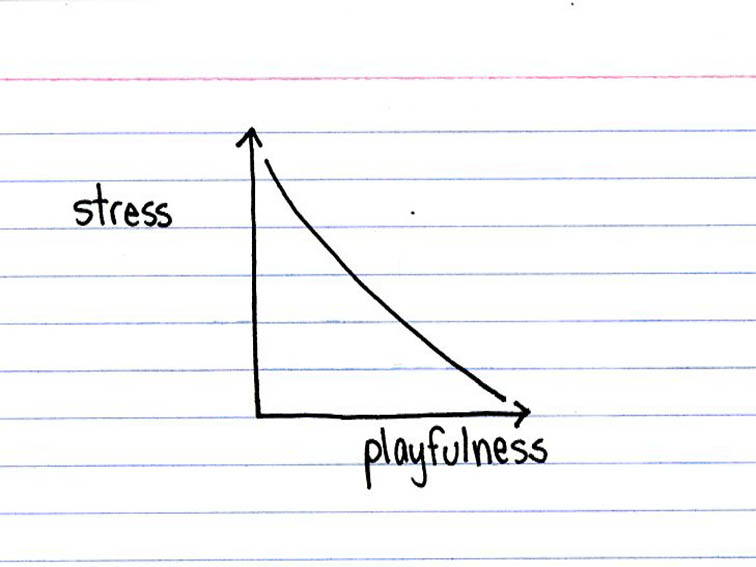 stress
playfulness